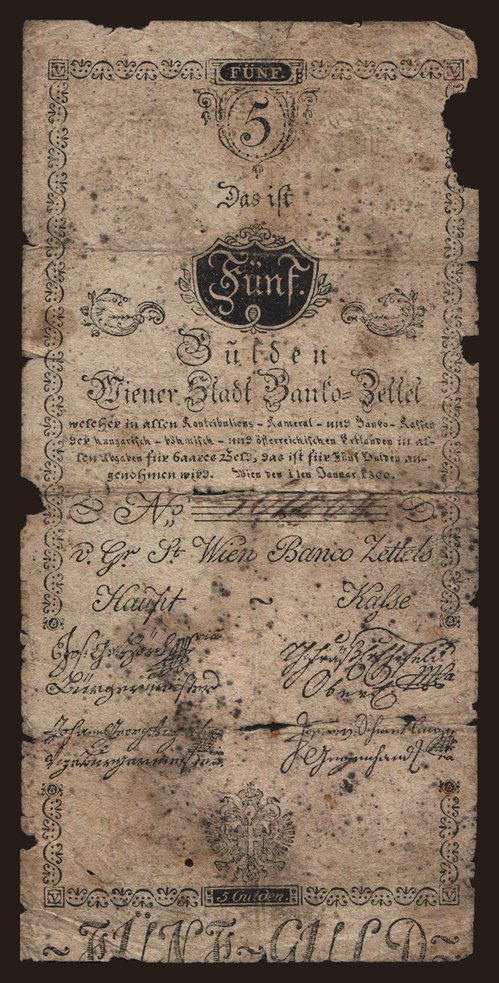 V FÜNF. V
5
Das ist
Fünf.
Gulden
Wiener Stadt Banko-Zettel
welcher in allen Kontributions- Kameral- und Banko-Kassen
der hungarisch- böhmisch- und österreichischen Erblanden in al-
len Abgaben für baares Geld, das ist für Fünf Gulden an-
genohmen wird. Wien den 1ten Januar 1800.
No
v. Gr St Wien Banco Zettels
Haupt ~ Kasse
Bürgermeister Oberei
Johann Georg
Vizebürgermeister Gegenhand
V 5 Gulden. V
~ FÜNF = GULD ~